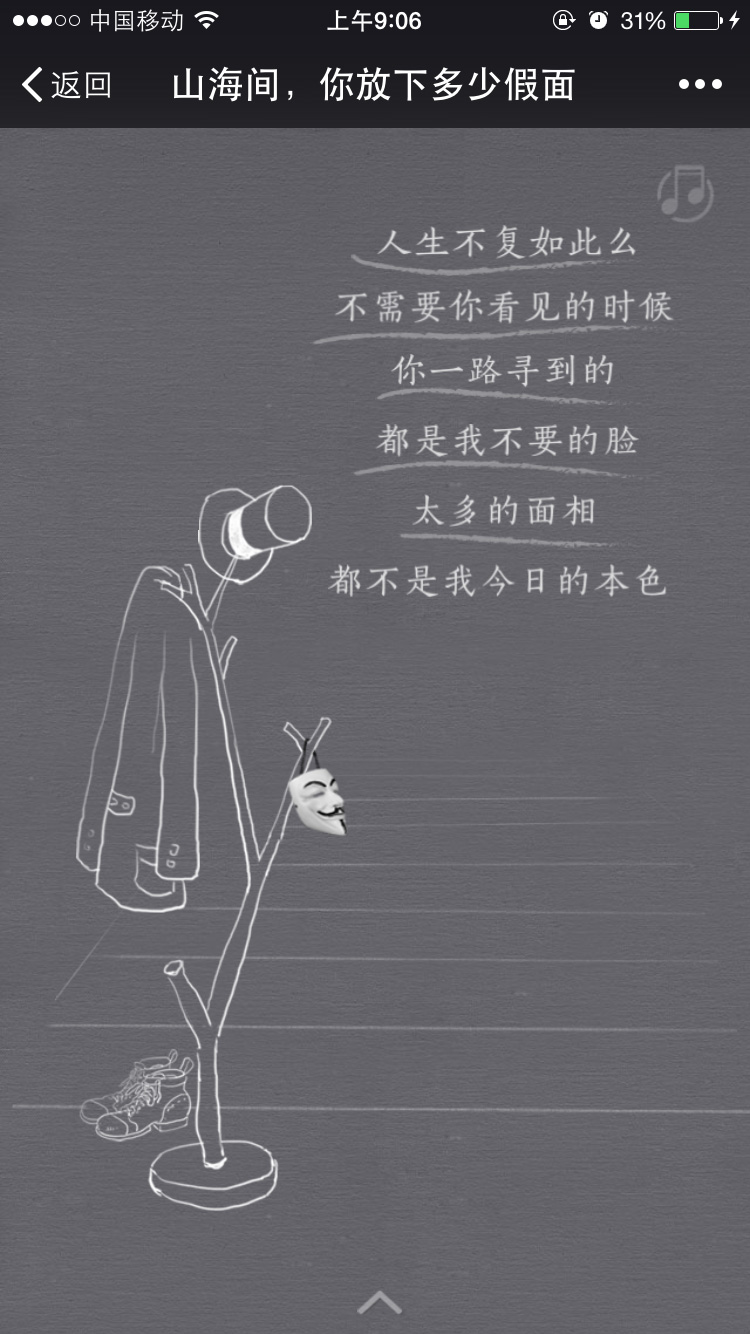 中国移动 上午9:06 31%
返回 山海间，你放下多少假面
人生不复如此么
不需要你看见的时候
你一路寻到的
都是我不要的脸
太多的面相
都不是我今日的本色